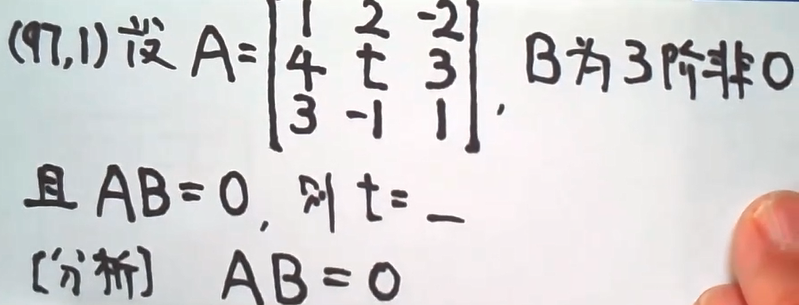 (97,1)设 A=[1 2 -2
4 t 3
3 -1 1], B为3阶非0
且 AB=0, 则 t=_
[分析] AB=0